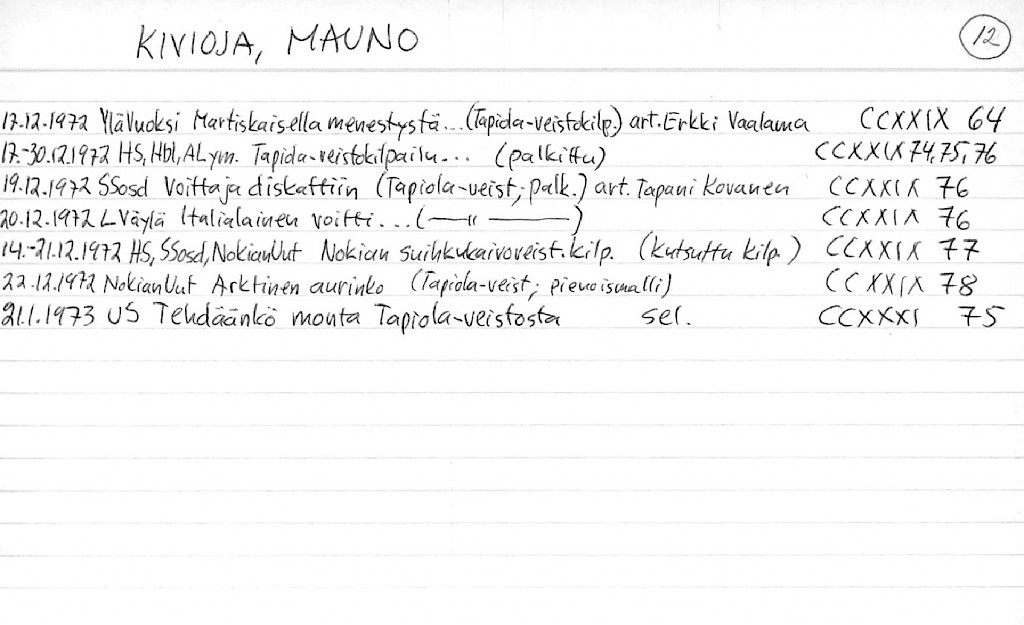 KIVIOJA, MAUNO
12
17.12.1972 YläVuoksi Martiskaisella menestystä... (Tapiola-veistokilp.) art. Erkki Vaalama CCXXIX 64
17.-30.12.1972 HS, Hbl, AL ym. Tapiola-veistokilpailu... (palkittu) CCXXIX 74, 75, 76
19.12.1972 SSosd Voittaja diskattiin (Tapiola-veist; palk.) art. Tapani Kovanen CCXXIX 76
20.12.1972 L Väylä Italialainen voitti... (—"—) CCXXIX 76
14.-21.12.1972 HS, SSosd, NokianUut Nokian suihkukaivoveist.kilp. (kutsuttu kilp.) CCXXIX 77
22.12.1972 NokianUut Arktinen aurinko (Tapiola-veist; pienoismalli) CCXXIX 78
21.1.1973 US Tehdäänkö monta Tapiola-veistosta sel. CCXXXI 75